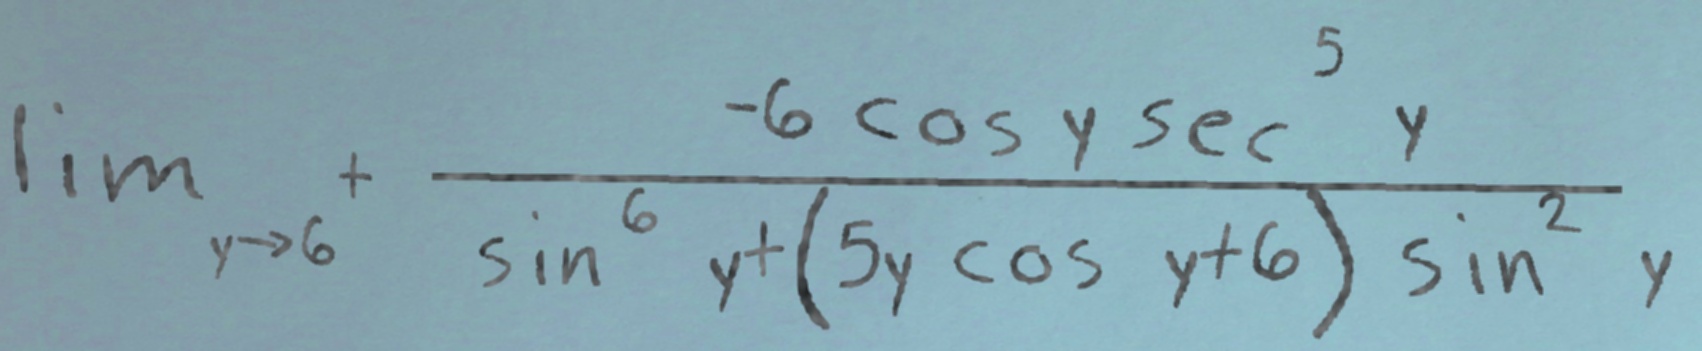 \lim_{y \to 6^+} \frac{-6 \cos y \sec^5 y}{\sin^6 y + (5y \cos y + 6) \sin^2 y}